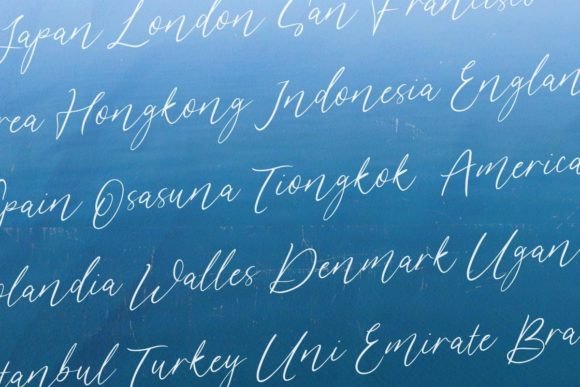 Japan London San Francisco
rea Hongkong Indonesia Englan
pain Osasuna Tiongkok America
olandia Walles Denmark Ugan
stanbul Turkey Uni Emirate Bra